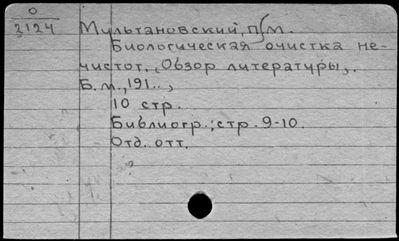 0
3124
Мультановский, П. М.
Биологическая очистка не-
чистот. (Обзор литературы).
Б. м., 191..,
10 стр.
Библиогр.; стр. 9-10.
Отд. отт.
?